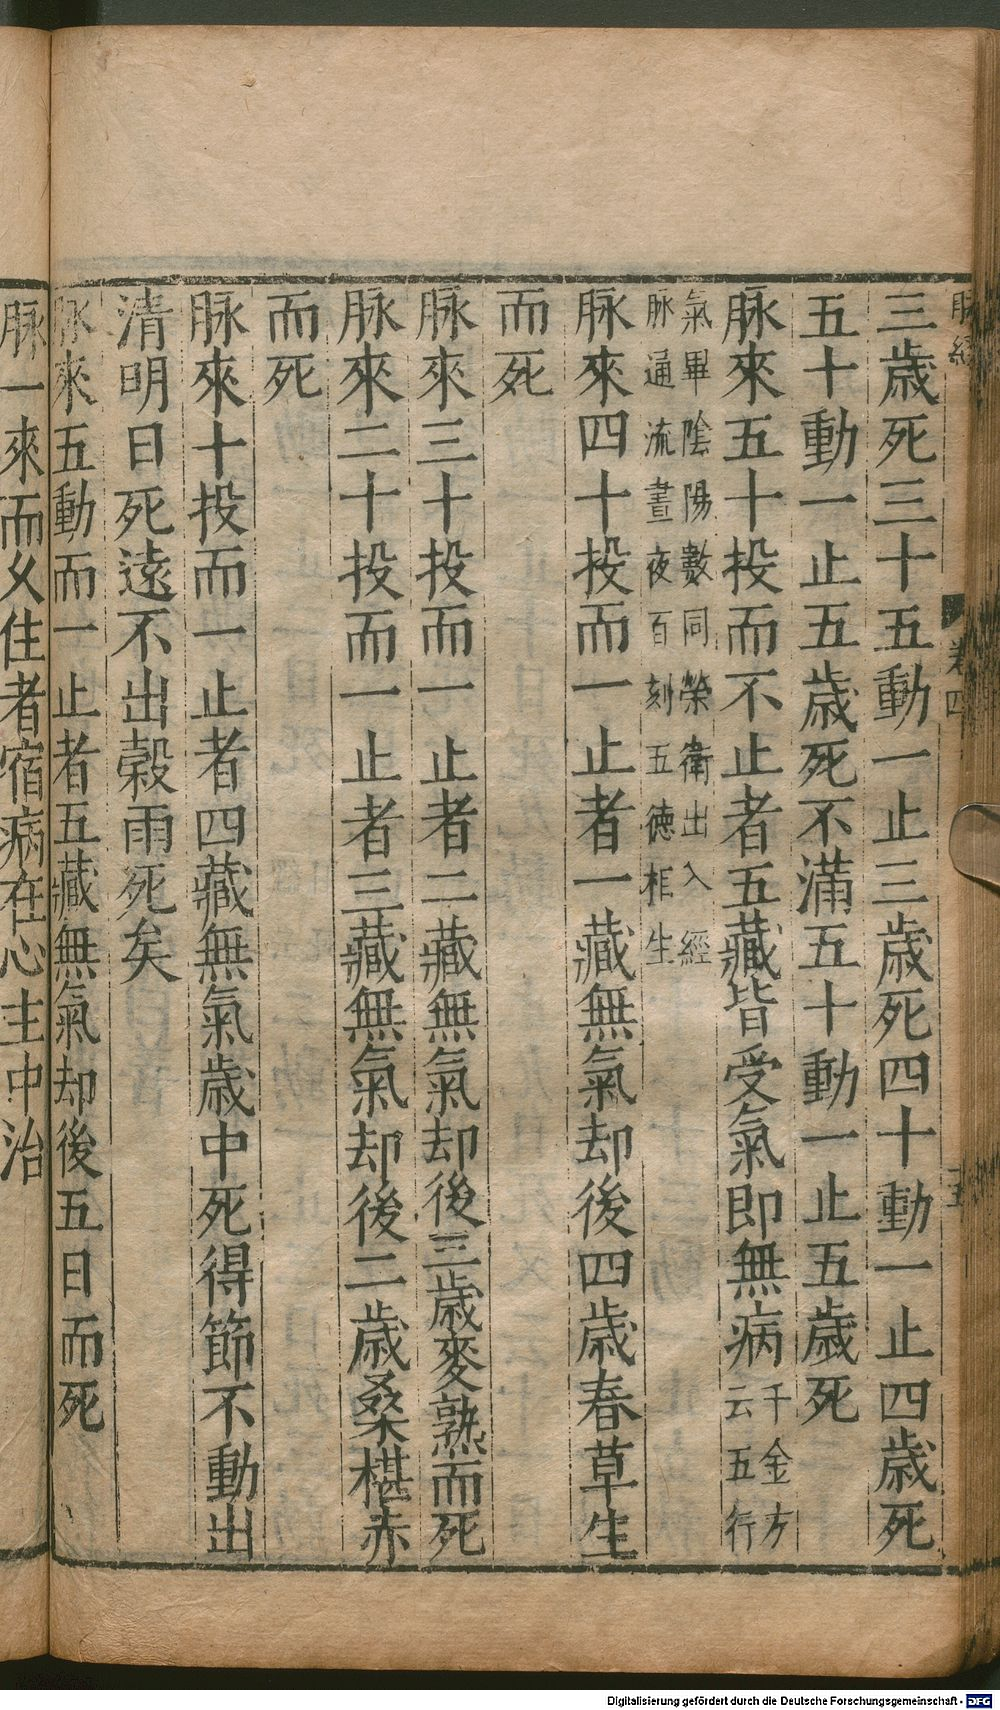 脉經 卷四 五
三歲死三十五動一止三歲死四十動一止四歲死
五十動一止五歲死不滿五十動一止五歲死
脉來五十投而不止者五藏皆受氣即無病千金方云五行
氣畢陰陽數同榮衛出入經
脉通流晝夜百刻五德相生
脉來四十投而一止者一藏無氣却後四歲春草生
而死
脉來三十投而一止者二藏無氣却後三歲麥熟而死
脉來二十投而一止者三藏無氣却後二歲桑椹赤
而死
脉來十投而一止者四藏無氣歲中死得節不動出
清明日死遠不出穀雨死矣
脉來五動而一止者五藏無氣却後五日而死
脉一來而久住者宿病在心主中治
Digitalisierung gefördert durch die Deutsche Forschungsgemeinschaft - DFG